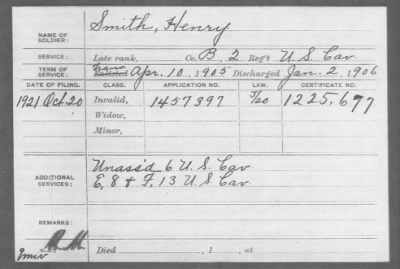 Smith, Henry
NAME OF SOLDIER:
SERVICE: Late rank, Co. B, 2 Reg't U.S. Cav
TERM OF SERVICE: Enlisted Apr. 10, 1905 Discharged Jan. 2, 1906
DATE OF FILING. CLASS. APPLICATION NO. LAW. CERTIFICATE NO.
1921 Oct. 20 Invalid, 1457397 1225.677
Widow,
Minor,
ADDITIONAL SERVICES:
Unass'd 6 U.S. Cav
E, 8 & F, 13 U.S. Cav
REMARKS:
Died , 1 , at